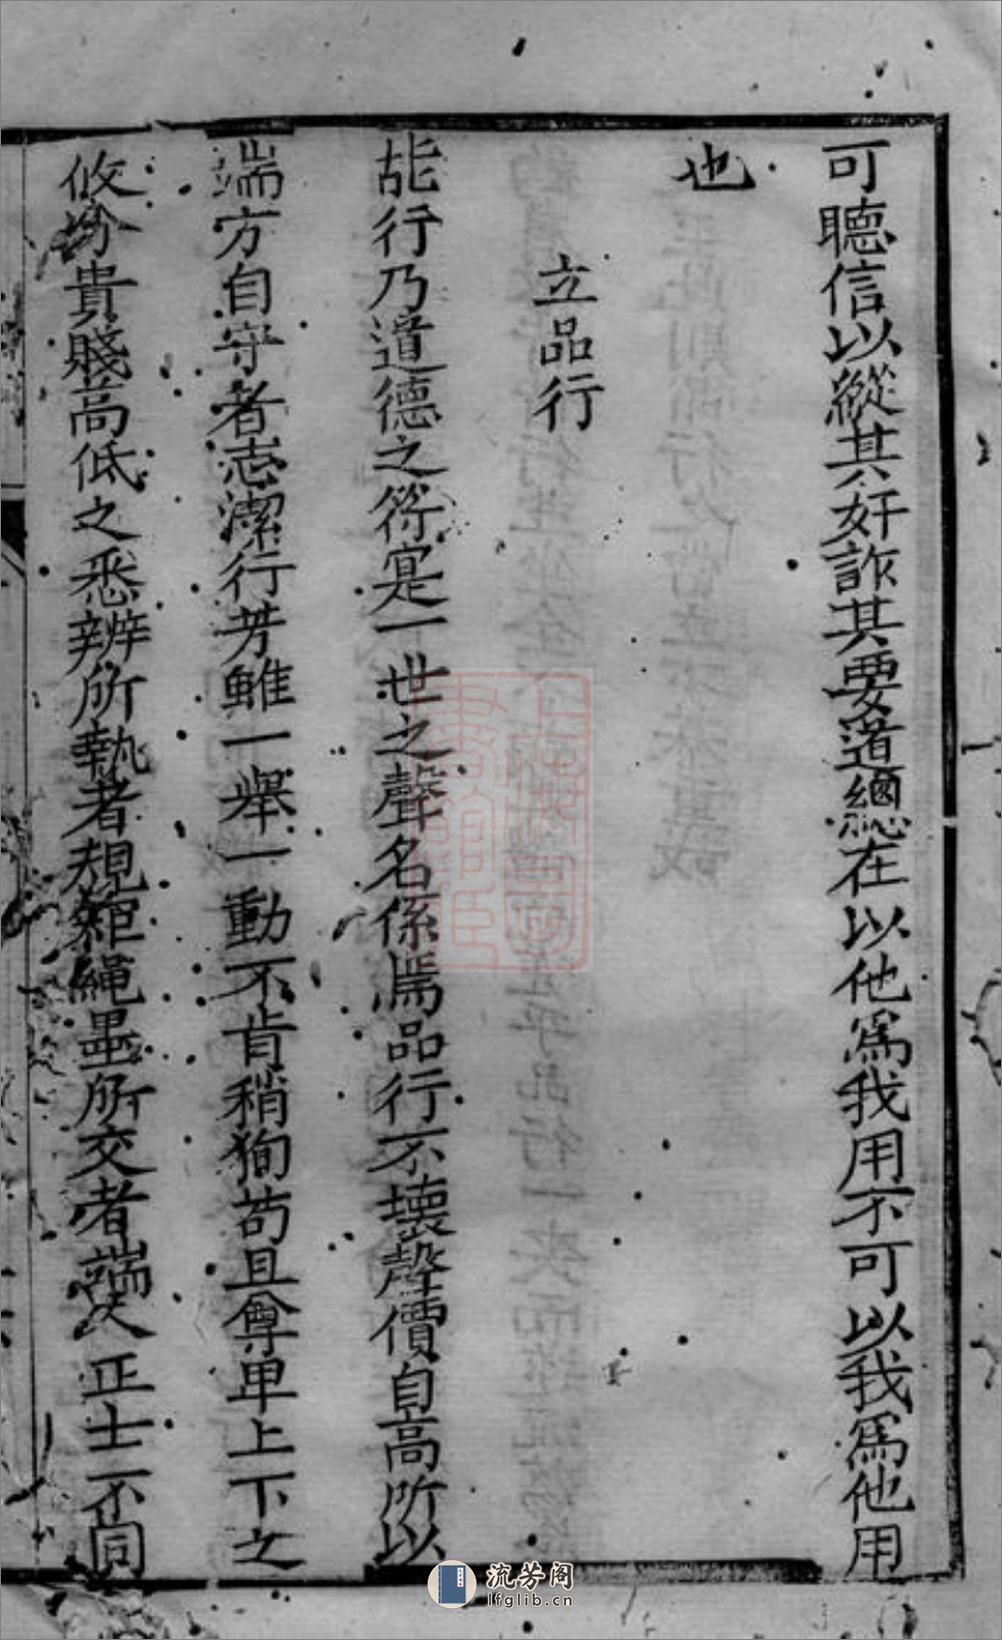 可聽信以縱其奸詐其要道總在以他爲我用不可以我爲他用
也
立品行
品行乃道德之符寔一世之聲名係焉品行不壞聲價自高所以
端方自守者志潔行芳雖一舉一動不肯稍狥苟且尊卑上下之
攸分貴賤高低之悉辨所執者規矩繩墨所交者端人正士不同
流芳阁
lfglib.cn